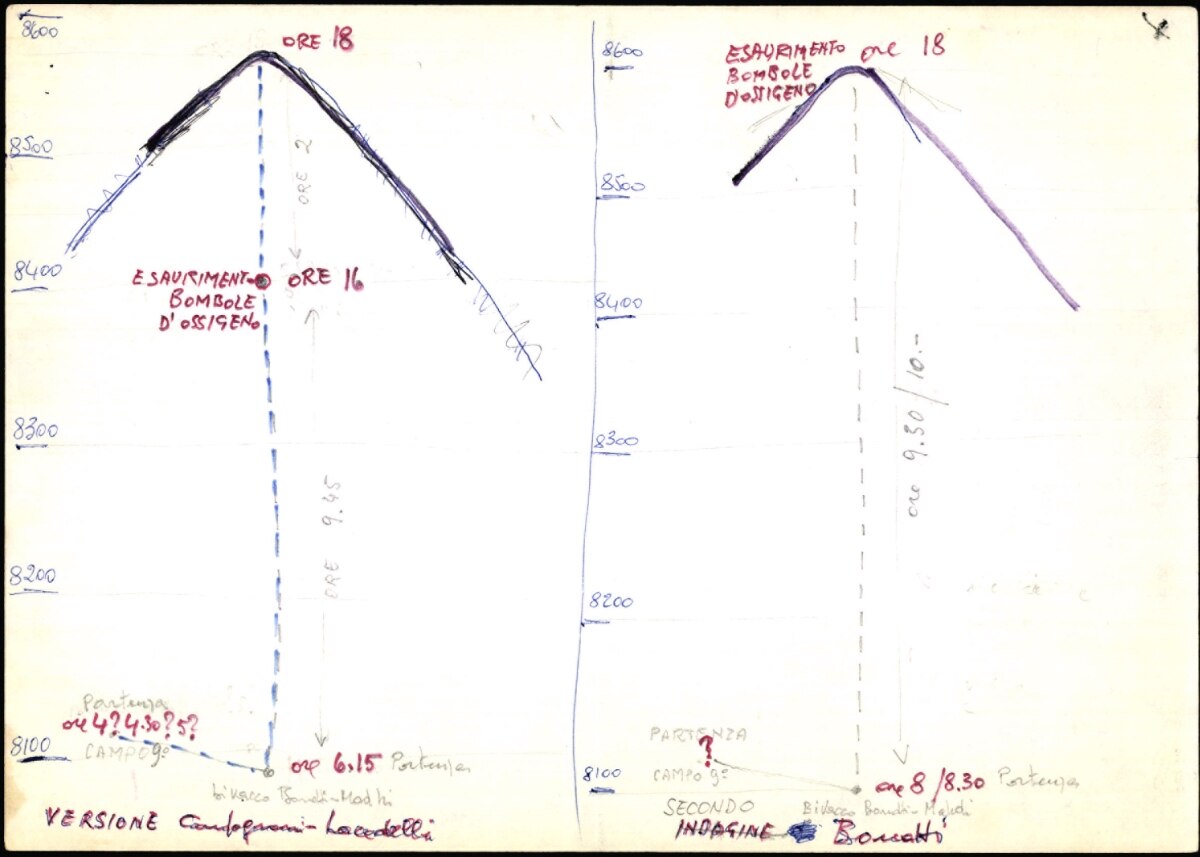 8600
ORE 18
8500
ORE 2
8400
ESAURIMENTO
BOMBOLE
D'OSSIGENO
ORE 16
8300
ORE 9.45
8200
Partenza
ore 4? 4.30? 5?
8100
CAMPO 9º
ore 6.15 Partenza
bivacco Bonatti-Madhi
VERSIONE Compagnoni-Lacedelli
8600
ESAURIMENTO
BOMBOLE
D'OSSIGENO
ore 18
8500
8400
ore 9.30/10.-
8300
8200
PARTENZA
?
CAMPO 9º
8100
ore 8/8.30 Partenza
Bivacco Bonatti-Mahdi
SECONDO
INDAGINE Bonatti